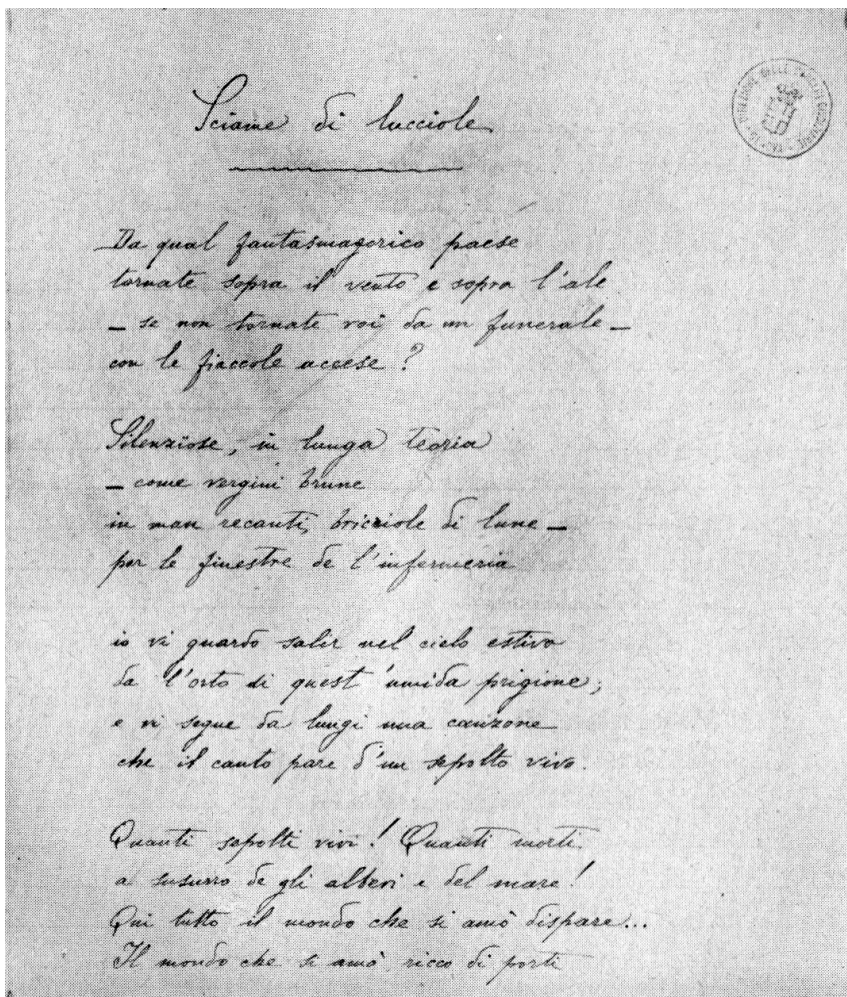 Sciame di lucciole
Da qual fantasmagorico paese
tornate sopra il vento e sopra l'ale
— se non tornate voi da un funerale —
con le fiaccole accese?
Silenziose, in lunga teoria
— come vergini brune
in man recanti briciole di lune —
per le finestre de l'infermeria
io vi guardo salir nel cielo estivo
da l'orto di quest'umida prigione;
e vi segue da lungi una canzone
che il canto pare d'un sepolto vivo.
Quanti sepolti vivi! Quanti morti
al susurro de gli alberi e del mare!
Qui tutto il mondo che si amò dispare...
Il mondo che si amò ricco di porti